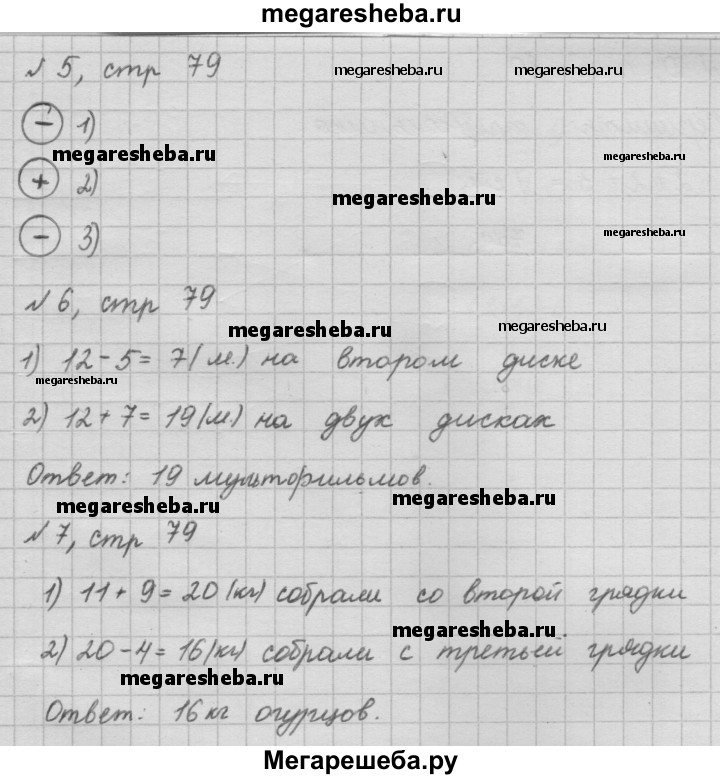 megaresheba.ru
№ 5, стр 79
megaresheba.ru
megaresheba.ru
⊖ 1)
megaresheba.ru
megaresheba.ru
⊕ 2)
megaresheba.ru
⊖ 3)
megaresheba.ru
№ 6, стр 79
megaresheba.ru
megaresheba.ru
1) 12 - 5 = 7 (м.) на втором диске
megaresheba.ru
2) 12 + 7 = 19 (м.) на двух дисках
Ответ: 19 мультфильмов.
megaresheba.ru
megaresheba.ru
№ 7, стр 79
1) 11 + 9 = 20 (кг) собрали со второй грядки
megaresheba.ru
2) 20 - 4 = 16 (кг) собрали с третьей грядки
megaresheba.ru
Ответ: 16 кг огурцов.
Мегарешеба.ру